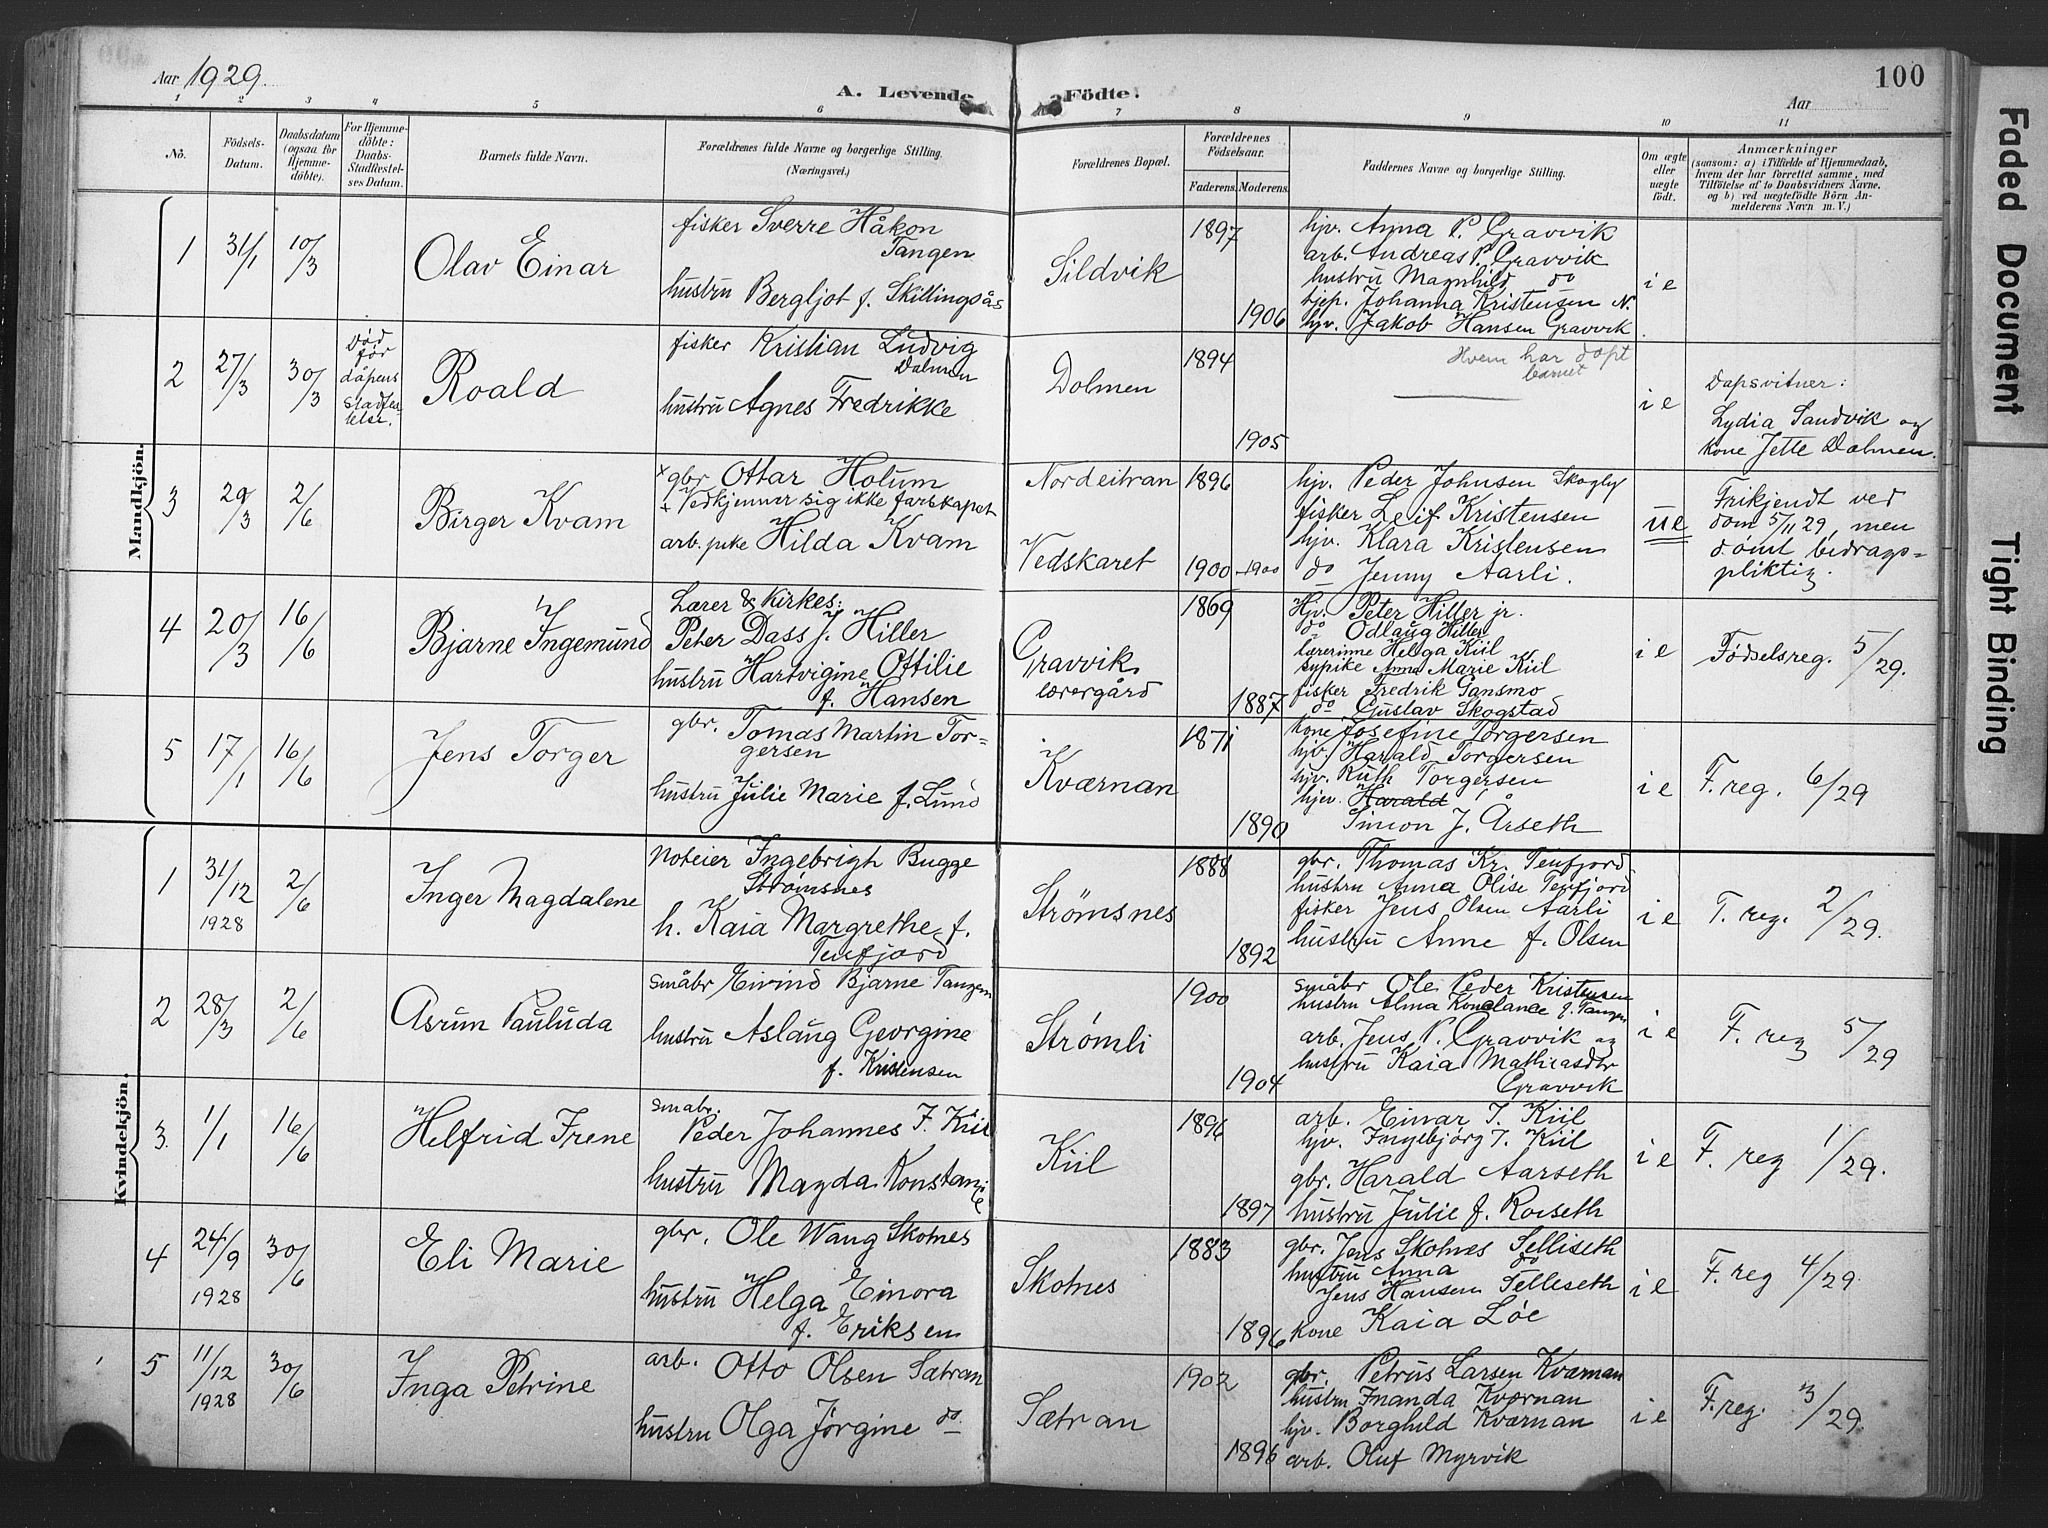 Aar 1929.
A. Levende Födte.
100
Aar
1 2 3 4 5 6 7 8 9 10 11
No.
Födsels-Datum.
Daabsdatum (ogsaa for Hjemme-döbte).
For Hjemme-döbte: Daabs-Stadfæstelses Datum.
Barnets fulde Navn.
Forældrenes fulde Navne og borgerlige Stilling.
(Næringsvei.)
Forældrenes Bopæl.
Forældrenes Födselsaar.
Faderens. Moderens.
Faddernes Navne og borgerlige Stilling.
Om ægte eller uægte födt.
Anmærkninger
(saasom: a) i Tilfælde af Hjemmedaab, hvem der har forrettet samme, med Tilföielse af to Daabsvidners Navne, og b) ved uægtefödte Börn Anmelderens Navn m. V.)
Mandkjön.
1 31/1 10/3 Olav Einar
fisker Sverre Håkon
Tangen
hustru Bergljot f. Skillingsås
Sildvik
1897
1906
hjv. Anna P. Gravvik
arb. Andreas P. Gravvik
hustru Magnhild do
tjep. Johanna Kristensen N.
hjv. Jakob Hansen Gravvik
i e
2 27/3 30/3
Død
før
dåpens
stadfes-
telse.
Roald
fisker Kristian Ludvig
Dolmen
hustru Agnes Fredrikke
Dolmen
1894
1905
Hvem har døpt
barnet
i e
Dapsvitner:
Lydia Sandvik og
kone Jette Dolmen.
3 29/3 2/6 Birger Kvam
x gbr Ottar Holum
x Vedkjenner sig ikke farskapet
arb. pike Hilda Kvam
Nordeitran
Vedskaret
1896
1900 1900
hjv. Peder Johnsen Skogly
fisker Leif Kristensen
hjv. Klara Kristensen
do Jenny Aarli.
ue
Frikjendt ved
dom 5/11 29, men
dømt bidrags-
pliktig.
4 20/3 16/6 Bjarne Ingemund
Lærer & Kirkes:
Peter Dass J. Hiller
hustru Hartvigine Ottilie
f. Hansen
Gravvik
lærergård
1869
1887
Hjv. Peter Hiller jr.
do Odlaug Hiller
lærerinne Helga Kiil
sypike Anna Marie Kiil
fisker Fredrik Gansmo
do Gustav Skogstad
i e
Fødselsreg. 5/29.
5 17/1 16/6 Jens Torger
gbr. Tomas Martin Tor-
gersen
hustru Julie Marie f. Lund
Kværnan
1871
1890
kone Josefine Torgersen
hjv. Harald Torgersen
hjv. Ruth Torgersen
hjv. Harald
Simon J. Årseth
i e
F. reg. 6/29
Kvindekjön.
1 31/12 1928 2/6 Inger Magdalene
Noteier Ingebrigh Bugge
Strømsnes
h. Kaia Margrethe f.
Tenfjord
Strømsnes
1888
1892
gbr. Thomas Kr. Tenfjord
hustru Anna Olise Tenfjord
fisker Jens Olsen Aarli
hustru Anne f. Olsen
i e
F. reg. 2/29.
2 28/3 2/6 Asrun Pauluda
småbr Eivind Bjarne Tangen
hustru Aslaug Georgine
f. Kristensen
Strømli
1900
1904
småbr Ole Peder Kristensen
hustru Alma Konstance f. Tangen
arb. Jens P. Gravvik og
hustru Kaia Mathiasdtr
Gravvik
i e
F. reg 5/29
3. 1/1 16/6 Helfrid Irene
småbr.
Peder Johannes F. Kiil
hustru Magda Konstanzie
Kiil
1896
1897
arb. Einar I. Kiil
hjv. Ingebjørg I. Kiil
gbr. Harald Aarseth
hustru Julie f. Roiseth
i e
F. reg 1/29.
4 24/9 1928 30/6 Eli Marie
gbr. Ole Wang Skotnes
hustru Helga Einora
f. Eriksen
Skotnes
1883
1896
gbr. Jens Skotnes Selliseth
hustru Anna do
Jens Hansen Selleseth
kone Kaia Løe
i e
F. reg 4/29.
5 11/12 1928 30/6 Inga Petrine
arb. Otto Olsen Sætran
hustru Olga Jørgine do
Sætran
1902
1896
gbr. Petrus Larsen Kværnan
hustru Inanda Kværnan
hjv. Borghild Kværnan
arb. Oluf Myrvik
i e
F. reg. 3/29.
Faded Document
Tight Binding